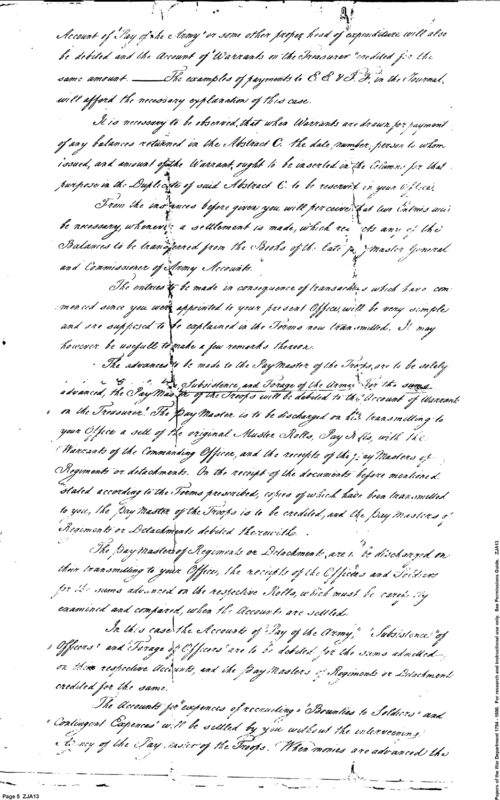 Account of "Pay of the Army" or some other proper head of expenditure will also
be debited and the Account of "Warrants on the Treasurer" credited for the
same amount. ——— The examples of payments to E E & F F, in the Journal,
will afford the necessary explanation of this case.
It is necessary to be observed, that when Warrants are drawn for payment
of any balances returned in the Abstract C. the date, number, person to whom
issued, and amount of the Warrant, ought to be inserted in the Columns for that
purpose in the Duplicate of said Abstract C. to be reserved in your Office.
From the instances before given you will perceive that two Entries will
be necessary, whenever a settlement is made, which respects any of the
Balances to be transferred from the Books of the late pay master General
and Commissioner of Army Accounts.
The entries to be made in consequence of transactions which have com-
menced since you were appointed to your present Office, will be very simple
and are supposed to be explained in the Forms now transmitted. It may
however be usefull to make a few remarks thereon.
The advances to be made to the PayMaster of the Troops, are to be solely
Subsistence, and Forage of the Army. For the sums
advanced, the Pay Master of the Troops will be debited to the "Account of Warrants
on the Treasurer." The Pay Master is to be discharged on his transmitting to
your Office a sett of the original Muster Rolls, Pay Rolls, with the
Warrants of the Commanding Officer, and the receipts of the Pay Masters of
Regiments or detachments. On the receipt of the documents before mentioned
stated according to the Forms prescribed, copies of which have been transmitted
to you, the Pay Master of the Troops is to be credited, and the Pay Masters of
Regiments or Detachments debited therewith.
The Pay Masters of Regiments or Detachments, are to be discharged on
their transmitting to your Office, the receipts of the Officers and Soldiers
for the sums advanced on the respective Rolls, which must be carefully
examined and compared, when the Accounts are settled.
In this case the Accounts of "Pay of the Army," "Subsistence of
Officers" and "Forage of Officers" are to be debited for the sums admitted
on their respective Accounts, and the Pay Masters of Regiments or Detachment
credited for the same.
The Accounts for "expences of recruiting" "Bounties to Soldiers" and
"Contingent Expences" will be settled by you without the intervening
Agency of the Pay Master of the Troops. When monies are advanced the
Page 5 ZJA13
Papers of the War Department 1784 - 1800. For research and instructional use only. See Permissions Guide. ZJA13